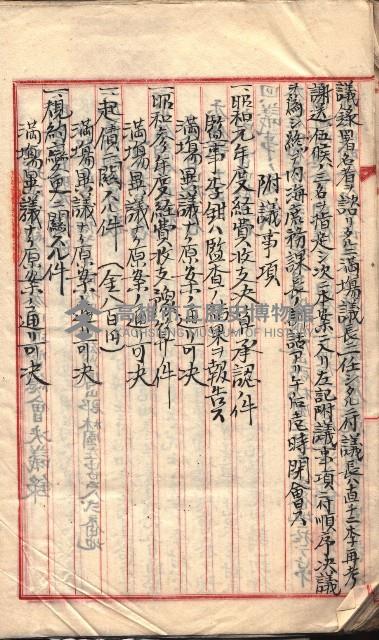 議錄署名者ヲ諮リタルニ満場議長ニ一任シタルニ付議長ハ直ニ李再考
謝送 伍候ノ三名ヲ指定シ次ニ本案ニ入リ左記附議事項ニ付順序決議
ヲ為シ終テ内海庶務課長ノ訓話アリ午后壱時閉會ス
附議事項
一、昭和元年度経費收支決算承認ノ件
監事李鉗ハ監查ノ結果ヲ報告ス
満場異議ナク原案ノ通リ可決
一、昭和参年度経費收支豫算ノ件
満場異議ナク原案ノ通リ可決
一、起債ニ關スル件 (金八百円)
満場異議ナク原案ノ通リ可決
一、規約變更ニ關スル件
満場異議ナク原案ノ通リ可決
高雄市立歷史博物館
KAOHSIUNG MUSEUM OF HISTORY